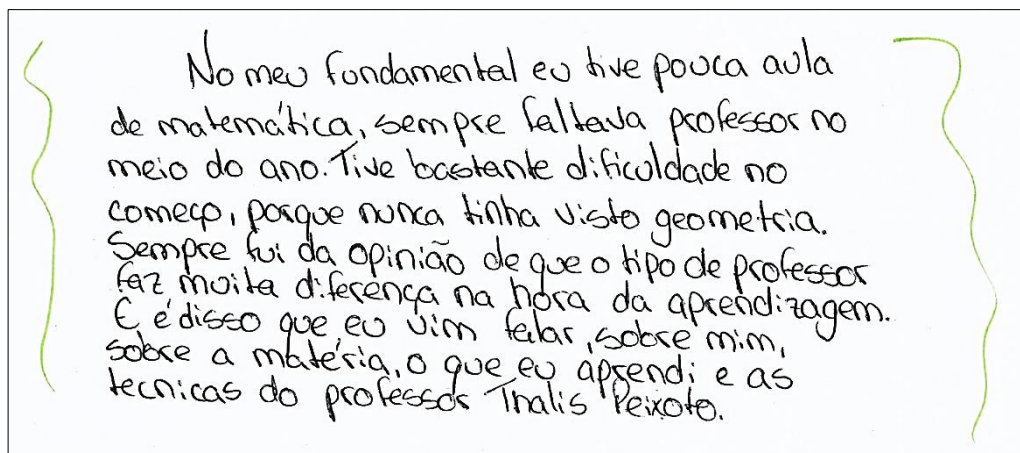 No meu fundamental eu tive pouca aula
de matemática, sempre faltava professor no
meio do ano. Tive bastante dificuldade no
começo, porque nunca tinha visto geometria.
Sempre fui da opinião de que o tipo de professor
faz muita diferença na hora da aprendizagem.
E é disso que eu vim falar, sobre mim,
sobre a matéria, o que eu aprendi e as
tecnicas do professor Thalis Peixoto.